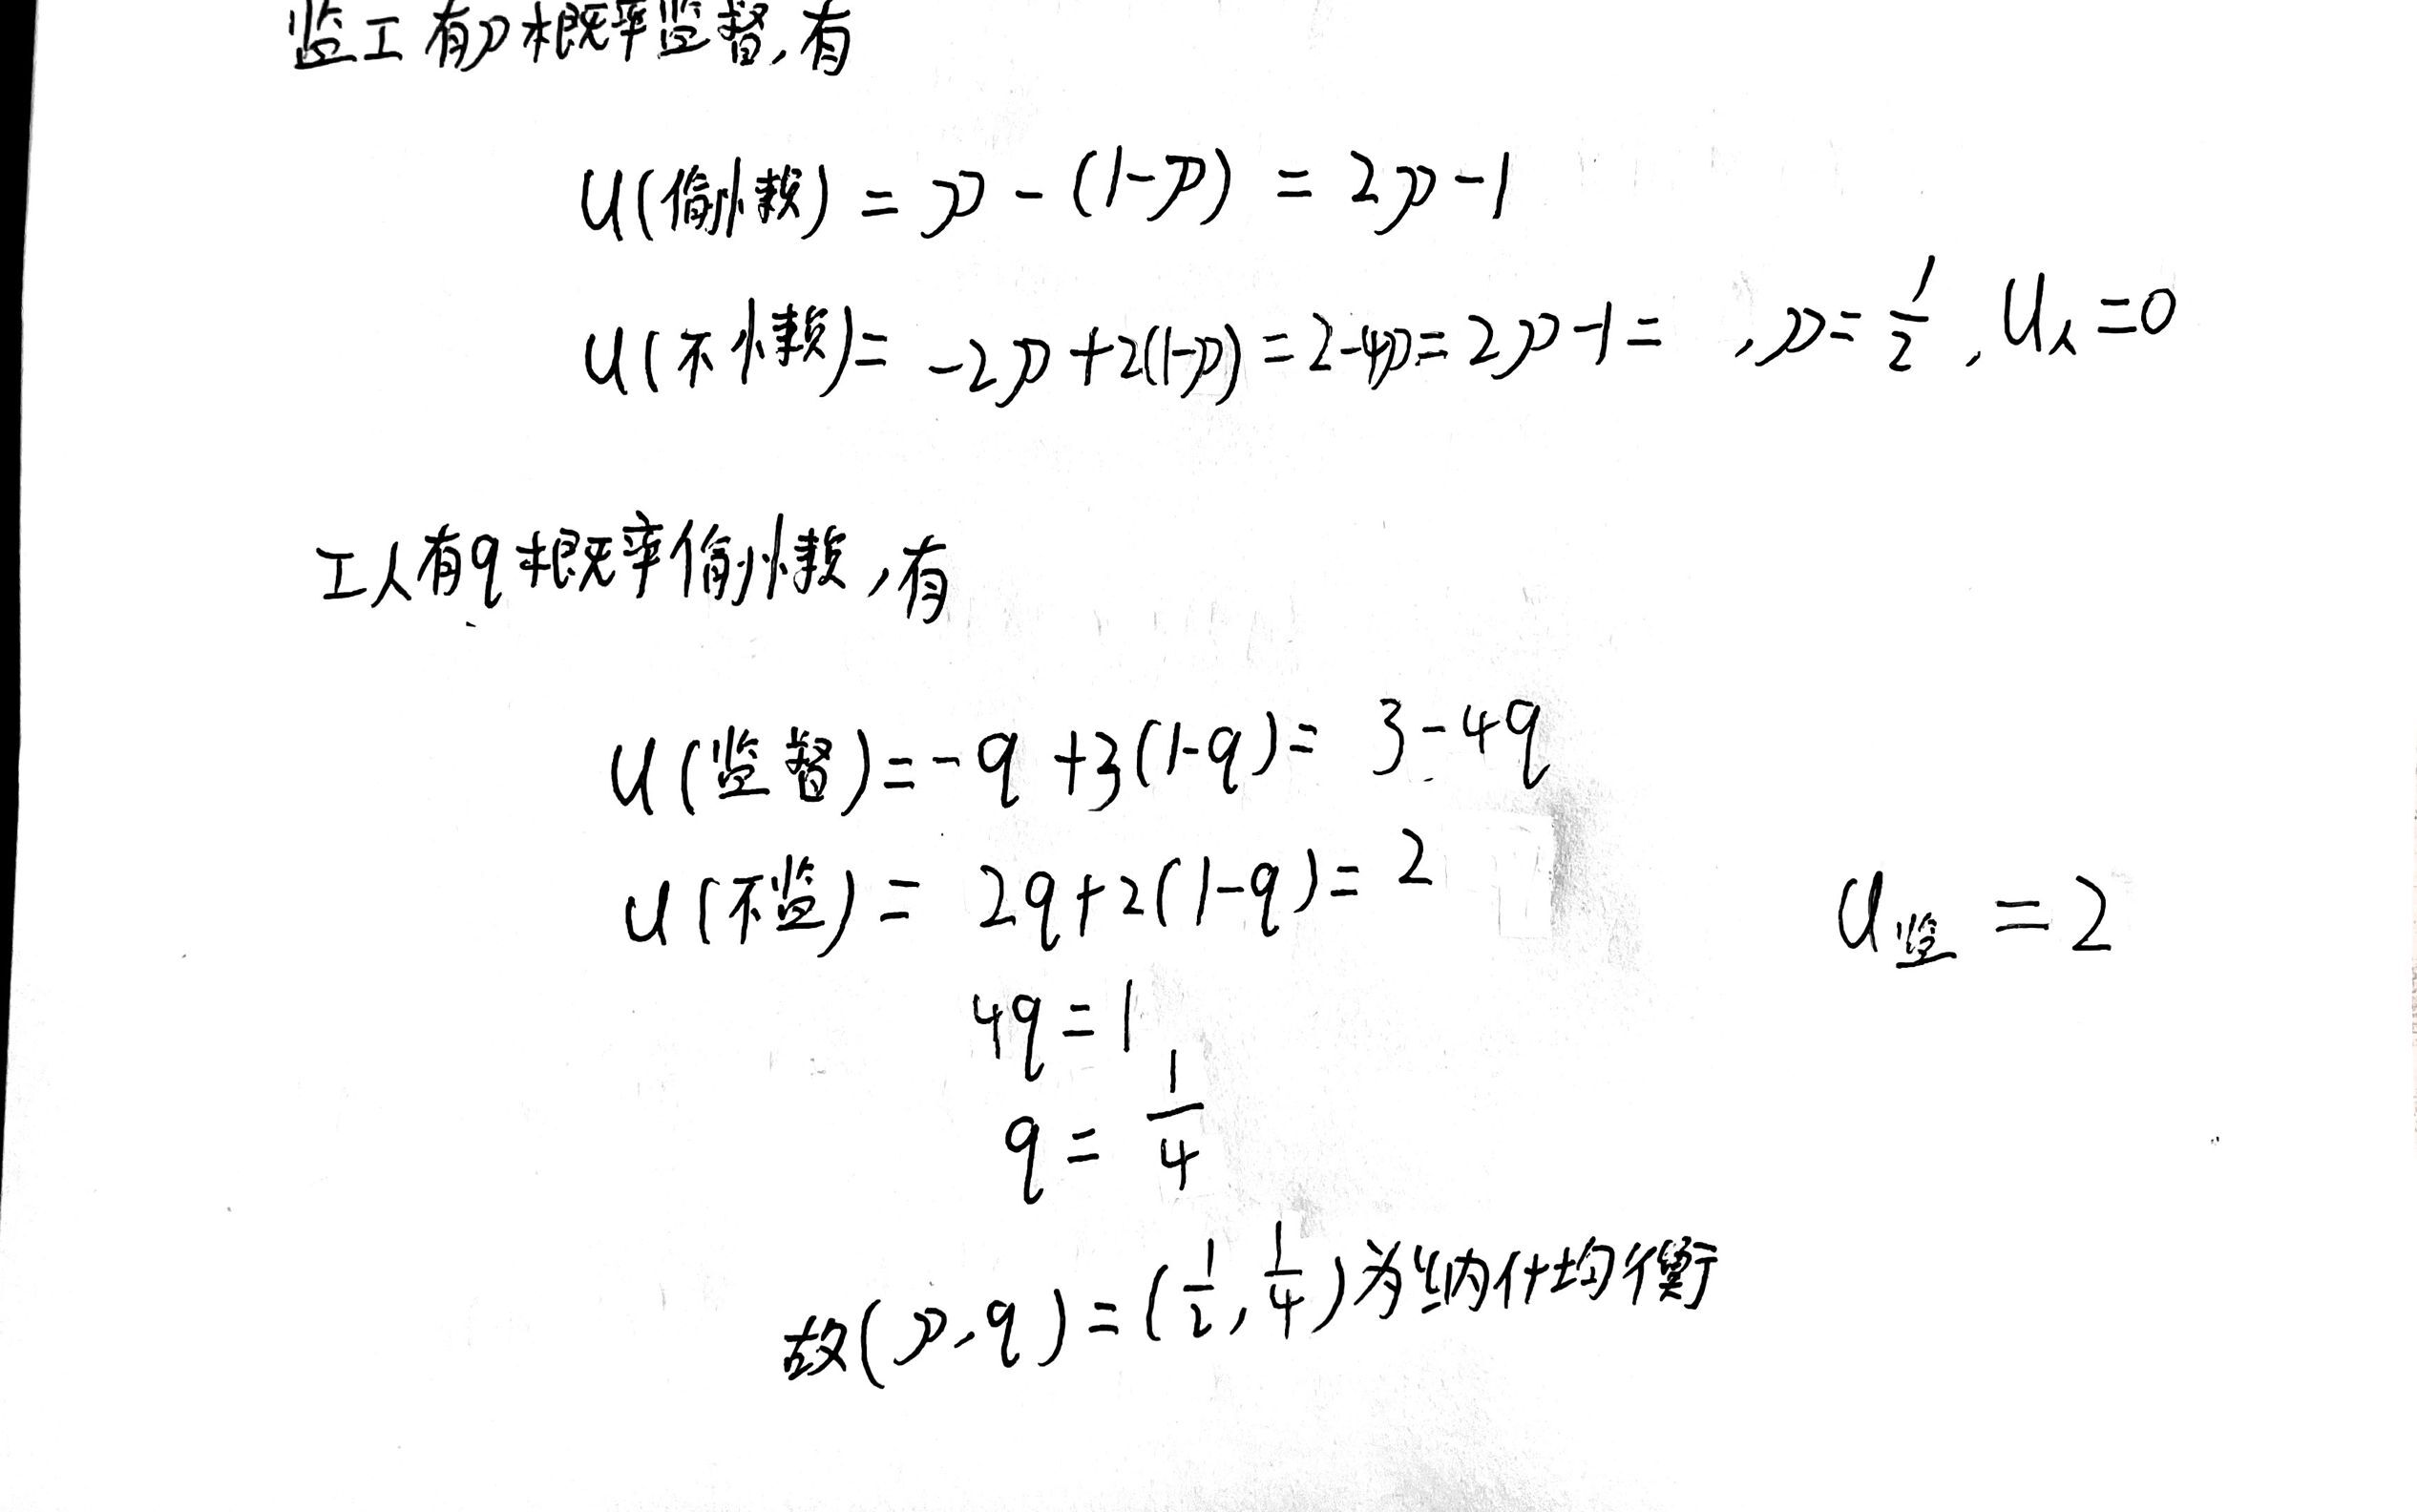 监工有p概率监督,有
U(偷懒) = p - (1-p) = 2p-1
U(不懒)= -2p+2(1-p)=2-4p=2p-1= ,p=1/2, U人=0
工人有q概率偷懒,有
U(监督)=-q+3(1-q)= 3-4q
U(不监)= 2q+2(1-q)= 2 U监=2
4q=1
q= 1/4
故(p,q)=(1/2,1/4)为纳什均衡